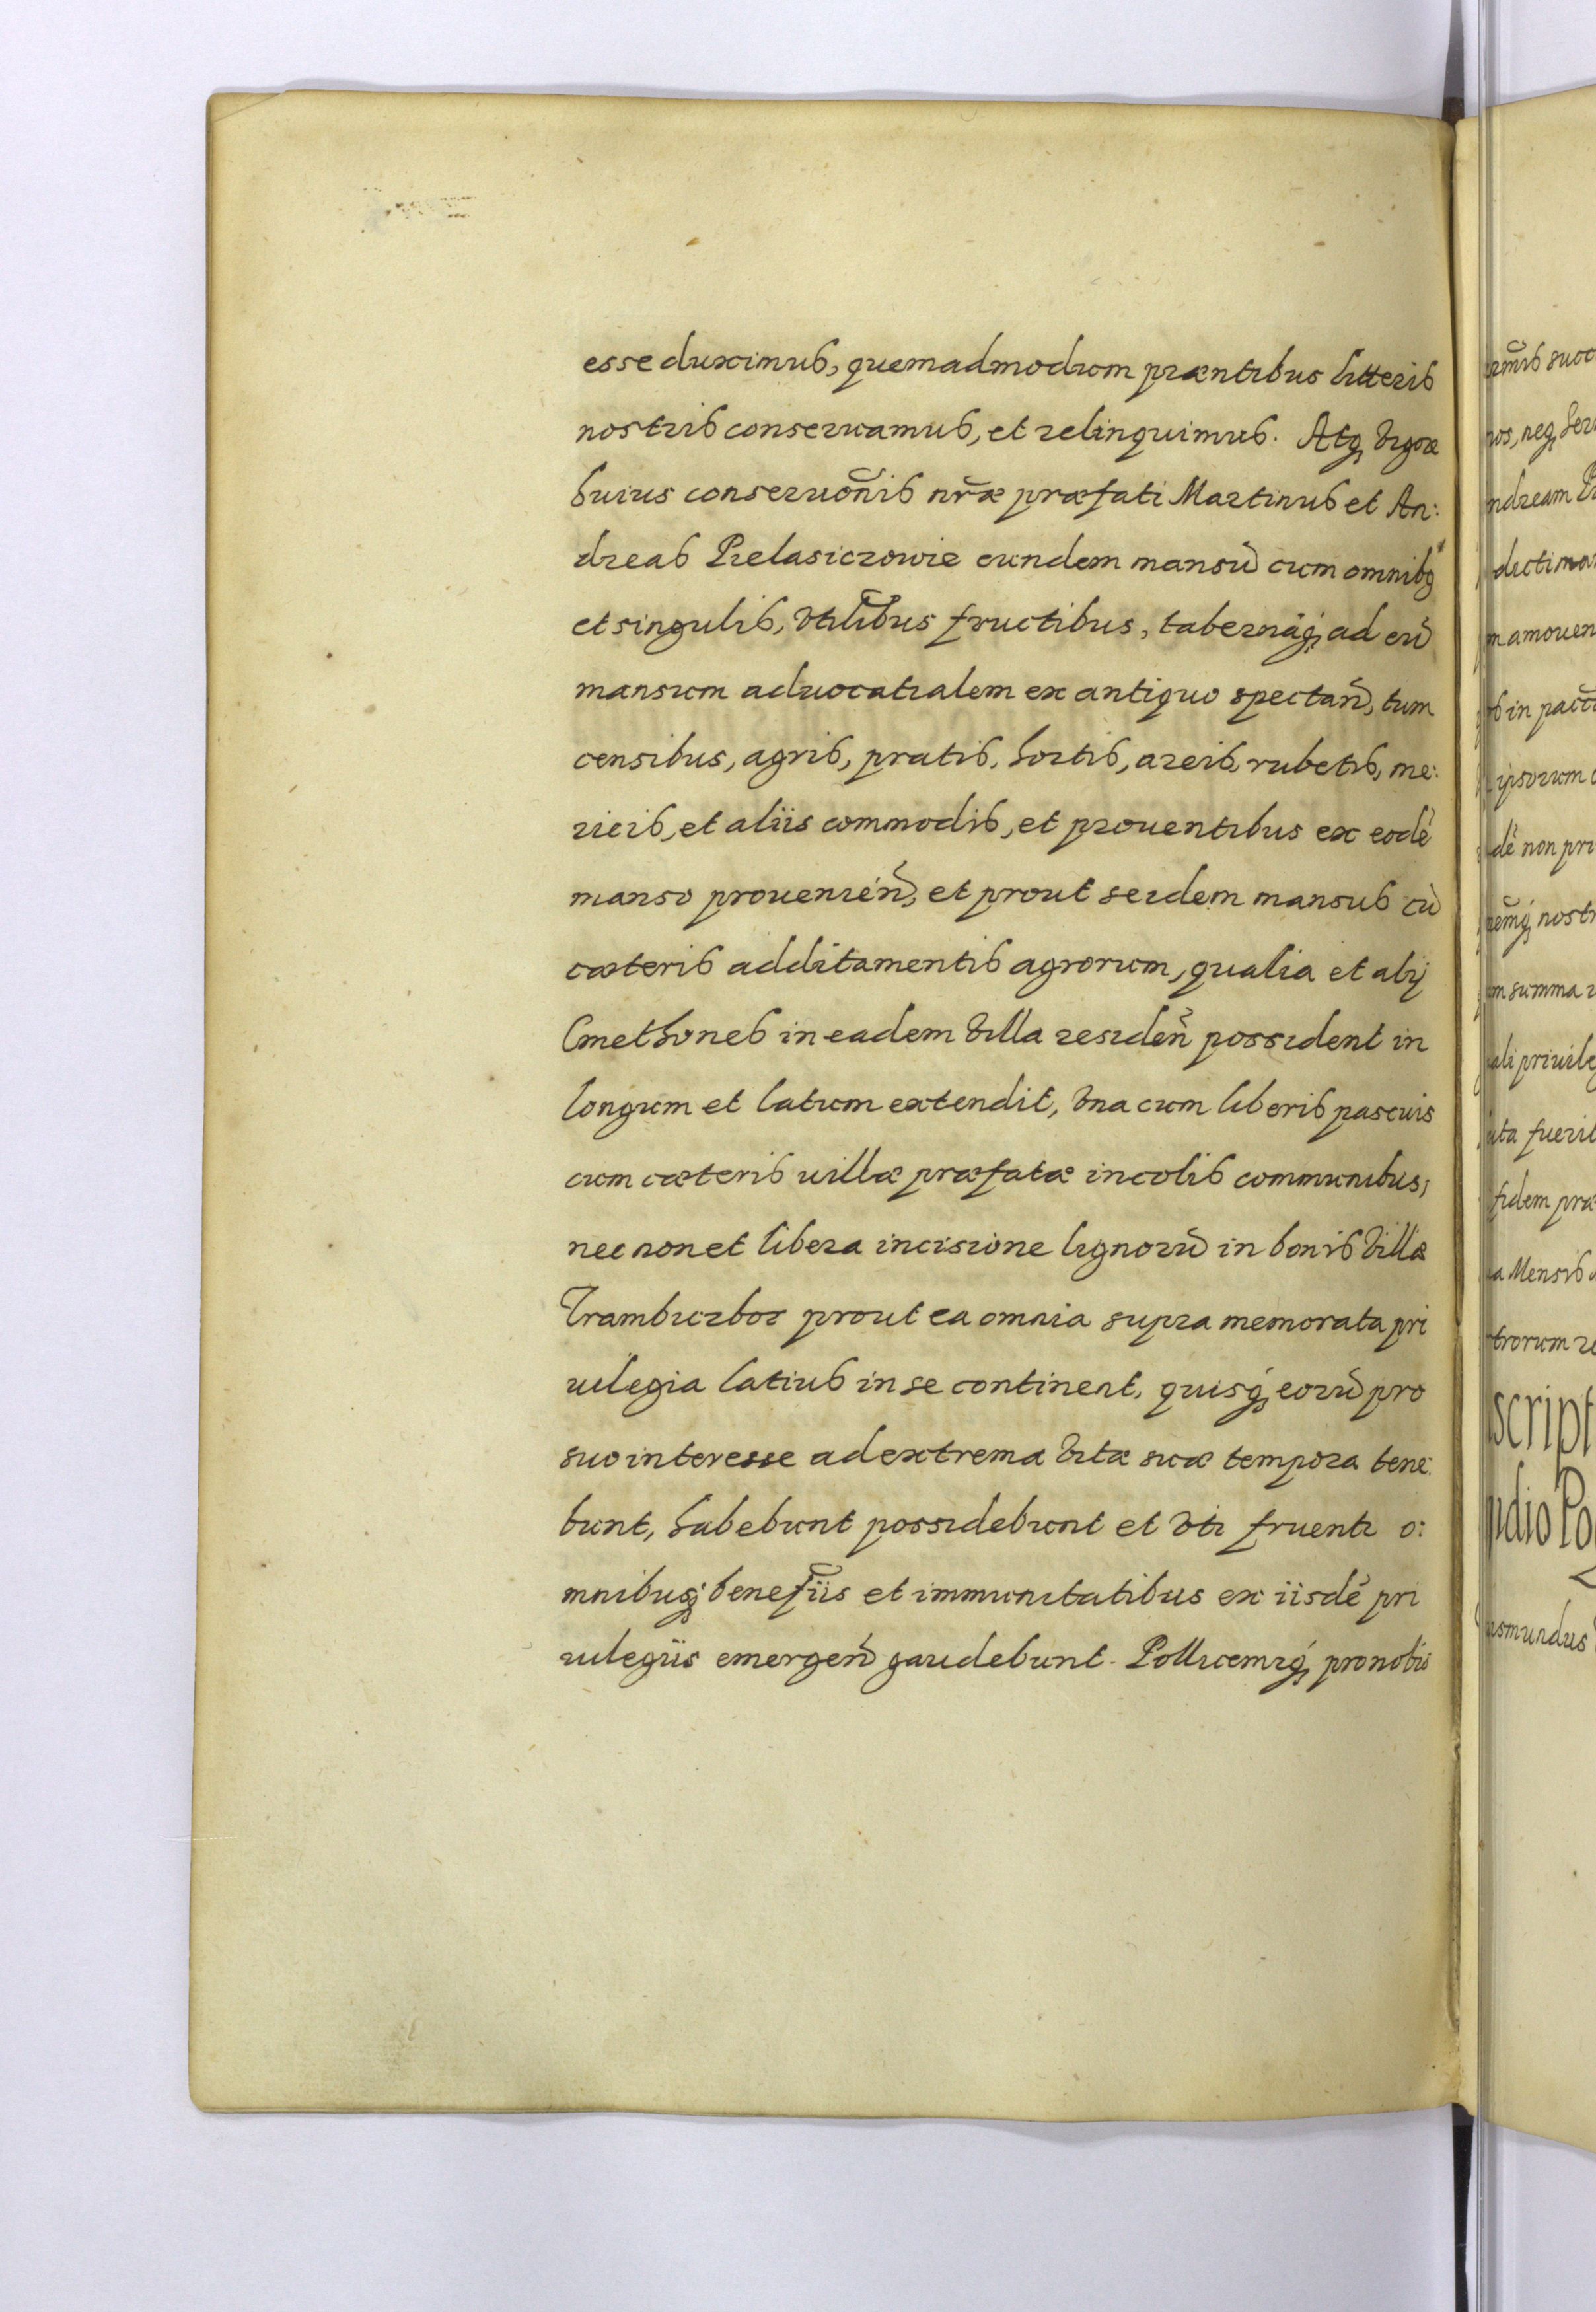 esse duximus, quemadmodum præntibus litteris
nostris conseruamus, et relinquimus. Atq vigore
huius conseruonis nræ præfati Martinus et An:
dreas Pielasiczowie eundem mansū cum omnibq
et singulis, vtilibus fructibus, tabernāq, ad eū
mansum aduocatialem ex antiquo spectan, tum
censibus, agris, pratis, hortis, areis, rubetis, me:
ricis, et aliis commodis, et prouentibus ex eodē
manso prouenien, et prout seidem mansus cū
cæteris additamentis agrorum, qualia et alij
Cmethones in eadem villa residen possident in
longum et latum extendit, vna cum liberis pascuis
cum cæteris uillæ præfatæ incolis communibus,
nec non et libera incisione lignorū in bonis villæ
prout ea omnia supra memorata pri
uilegia latius in se continent, quisq, eorū pro
suo interesse ad extrema vitæ suæ tempora tene:
bunt, habebunt possidebunt et vti fruenti o:
mnibusq, benefiis et immunitatibus ex iisdē pri
uilegiis emergen gaudebunt. Pollicemrq, pro nobis
amouen
ipsorum
dē non pri
nostr
summa
ali priuileg
fuerit
fidem præ
a Mensis
trorum
script
idio Po
ismundus